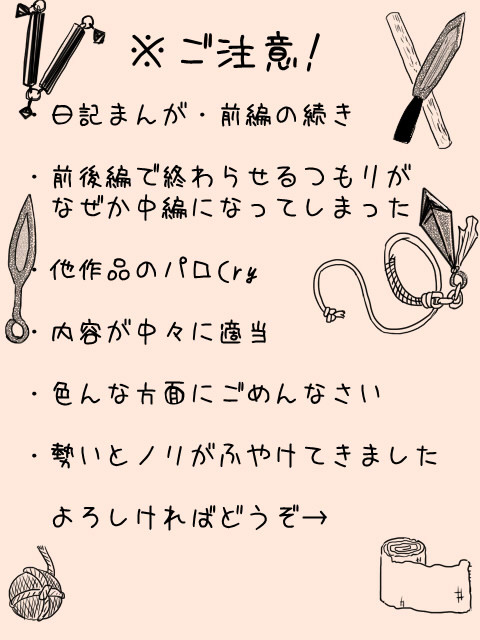 ※ご注意!
・日記まんが・前編の続き
・前後編で終わらせるつもりが
なぜか中編になってしまった
・他作品のパロ(ry
・内容が中々に適当
・色んな方面にごめんなさい
・勢いとノリがふやけてきました
よろしければどうぞ→